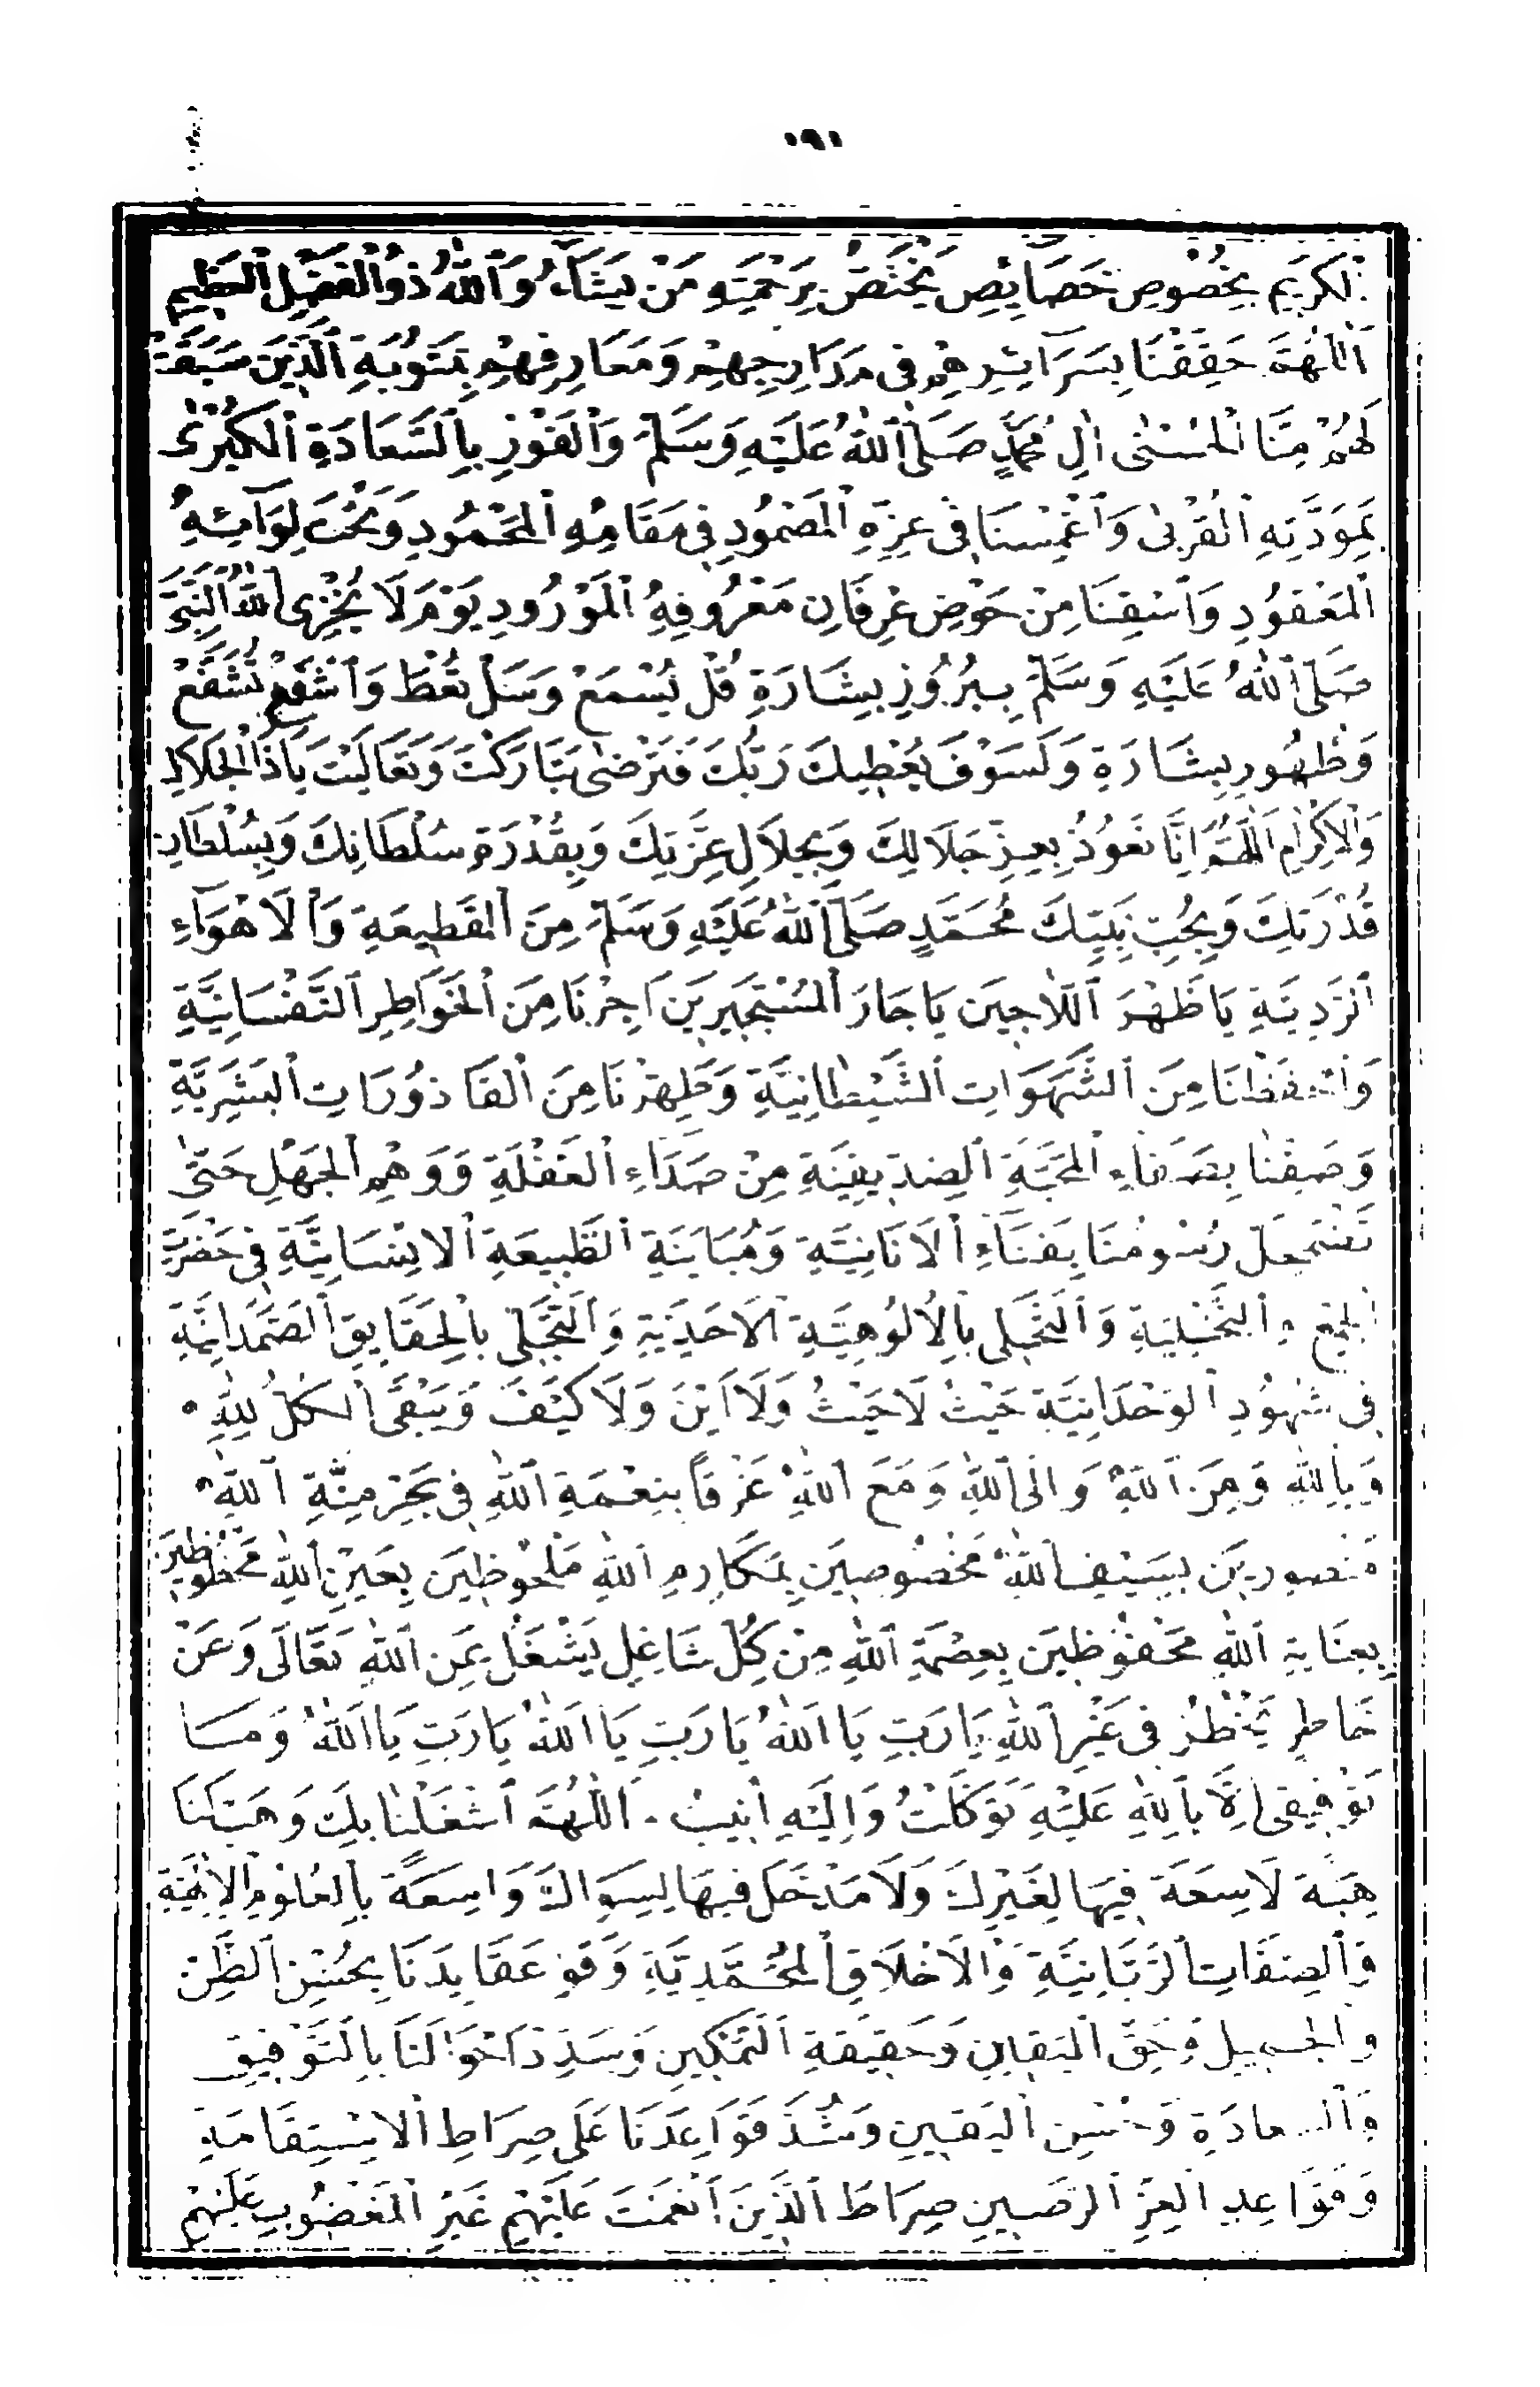 ١٩١
ٱلْكَرِيمِ بِخُصُوصِ خَصَايِٕصِ يَخْتَصُّ بِرَحْمَتِهِ مَنْ يَشَآءُ وَٱللّٰهُ ذُو ٱلْفَضْلِ ٱلْعَظِيمِ
اَللّٰهُمَّ حَقِّقْنَا بِسَرَآئِرِهِمْ فِى مَدَارِجِهِمْ وَمَعَارِفِهِمْ بِمَثُوبَةِ ٱلَّذِينَ سَبَقَتْ
لَهُمْ مِنَّا ٱلْحُسْنٰى اٰلِ مُحَمَّدٍ صَلَّى ٱللّٰهُ عَلَيْهِ وَسَلَّمَ وَٱلْفَوْزِ بِٱلسَّعَادَةِ ٱلْكُبْرٰى
بِمَوَدَّتِهِ ٱلْقُرْبٰى وَٱغْمِسْنَا فِى عِزِّهِ ٱلْمَصْمُودِ فِى مَقَامِهِ ٱلْمَحْمُودِ وَتَحْتَ لِوَآئِهِ
ٱلْمَعْقُودِ وَٱسْقِنَا مِنْ حَوْضِ عِرْفَانِ مَعْرُوفِهِ ٱلْمَوْرُودِ يَوْمَ لَا يُخْزِى ٱللّٰهُ ٱلنَّبِىَّ
صَلَّى ٱللّٰهُ عَلَيْهِ وَسَلَّمَ بِبُرُوزِ بِشَارَةِ قُلْ يُسْمَعْ وَسَلْ تُعْطَ وَٱشْفَعْ تُشَفَّعْ
وَظُهُورِ بِشَارَةِ وَلَسَوْفَ يُعْطِيكَ رَبُّكَ فَتَرْضٰى تَبَارَكْتَ وَتَعَالَيْتَ يَا ذَا ٱلْجَلَالِ
وَٱلْاِكْرَامِ اَللّٰهُمَّ اِنَّا نَعُوذُ بِعِزِّ جَلَالِكَ وَبِجَلَالِ عِزَّتِكَ وَبِقُدْرَةِ سُلْطَانِكَ وَبِسُلْطَانِ
قُدْرَتِكَ وَبِحُبِّ نَبِيِّكَ مُحَمَّدٍ صَلَّى ٱللّٰهُ عَلَيْهِ وَسَلَّمَ مِنَ ٱلْقَطِيعَةِ وَٱلْاَهْوَآءِ
ٱلرَّدِيَّةِ يَا ظَهْرَ ٱللَّاجِينَ يَا جَارَ ٱلْمُسْتَجِيرِينَ اَجِرْنَا مِنَ ٱلْخَوَاطِرِ ٱلنَّفْسَانِيَّةِ
وَٱحْفَظْنَا مِنَ ٱلشَّهَوَاتِ ٱلشَّيْطَانِيَّةِ وَطَهِّرْنَا مِنَ ٱلْقَاذُورَاتِ ٱلْبَشَرِيَّةِ
وَصَفِّنَا بِصَفَاءِ ٱلْمَحَبَّةِ ٱلصِّدِّيقِيَّةِ مِنْ صَدَاءِ ٱلْغَفْلَةِ وَوَهْمِ ٱلْجَهْلِ حَتّٰى
تَضْمَحِلَّ رُسُومُنَا بِفَنَاءِ ٱلْاَنَانِيَّةِ وَمُبَايَنَةِ ٱلطَّبِيعَةِ ٱلْاِنْسَانِيَّةِ فِى حَضْرَةِ
ٱلْجَمْعِ وَٱلتَّخْلِيَةِ وَٱلتَّحَلِّى بِٱلْاُلُوهِيَّةِ ٱلْاَحَدِيَّةِ وَٱلتَّجَلِّى بِٱلْحَقَايِقِ ٱلصَّمَدَانِيَّةِ
فِى شُهُودِ ٱلْوَحْدَانِيَّةِ حَيْثُ لَا حَيْثُ وَلَا اَيْنَ وَلَا كَيْفَ وَيَبْقَى ٱلْكُلُّ لِلّٰهِ
وَبِٱللّٰهِ وَمِنَ ٱللّٰهِ وَاِلَى ٱللّٰهِ وَمَعَ ٱللّٰهِ غَرْقًا بِنِعْمَةِ ٱللّٰهِ فِى بَحْرِ مِنَّةِ ٱللّٰهِ
مَنْصُورِينَ بِسَيْفِ ٱللّٰهِ مَخْصُوصِينَ بِمَكَارِمِ ٱللّٰهِ مَلْحُوظِينَ بِعَيْنِ ٱللّٰهِ مَحْظُوظِينَ
بِعِنَايَةِ ٱللّٰهِ مَحْفُوظِينَ بِعِصْمَةِ ٱللّٰهِ مِنْ كُلِّ شَاغِلٍ يَشْغَلُ عَنِ ٱللّٰهِ تَعَالَى وَعَنْ
خَاطِرٍ يَخْطُرُ فِى غَيْرِ ٱللّٰهِ يَا رَبِّ يَا اَللّٰهُ يَا رَبِّ يَا اَللّٰهُ يَا رَبِّ يَا اَللّٰهُ وَمَا
تَوْفِيقِى اِلَّا بِٱللّٰهِ عَلَيْهِ تَوَكَّلْتُ وَاِلَيْهِ اُنِيبُ. اَللّٰهُمَّ ٱشْغَلْنَا بِكَ وَهَبْ لَنَا
هِبَةً لَا سِعَةَ فِيهَا لِغَيْرِكَ وَلَا مَدْخَلَ فِيهَا لِسِوَاكَ وَاسِعَةً بِٱلْعُلُومِ ٱلْاِلٰهِيَّةِ
وَٱلصِّفَاتِ ٱلرَّبَّانِيَّةِ وَٱلْاَخْلَاقِ ٱلْمُحَمَّدِيَّةِ وَقَوِّ عَقَايِدَنَا بِحُسْنِ ٱلظَّنِّ
وَٱلْجَمِيلِ وَحَقِّ ٱلْيَقِينِ وَحَقِيقَةِ ٱلتَّمْكِينِ وَسَدِّدْ اَحْوَالَنَا بِٱلتَّوْفِيقِ
وَٱلسَّعَادَةِ وَحُسْنِ ٱلْيَقِينِ وَشُدَّ قَوَاعِدَنَا عَلَى صِرَاطِ ٱلْاِسْتِقَامَةِ
وَقَوَاعِدِ ٱلْعِزِّ ٱلرَّصِينِ صِرَاطَ ٱلَّذِينَ اَنْعَمْتَ عَلَيْهِمْ غَيْرِ ٱلْمَغْضُوبِ عَلَيْهِمْ